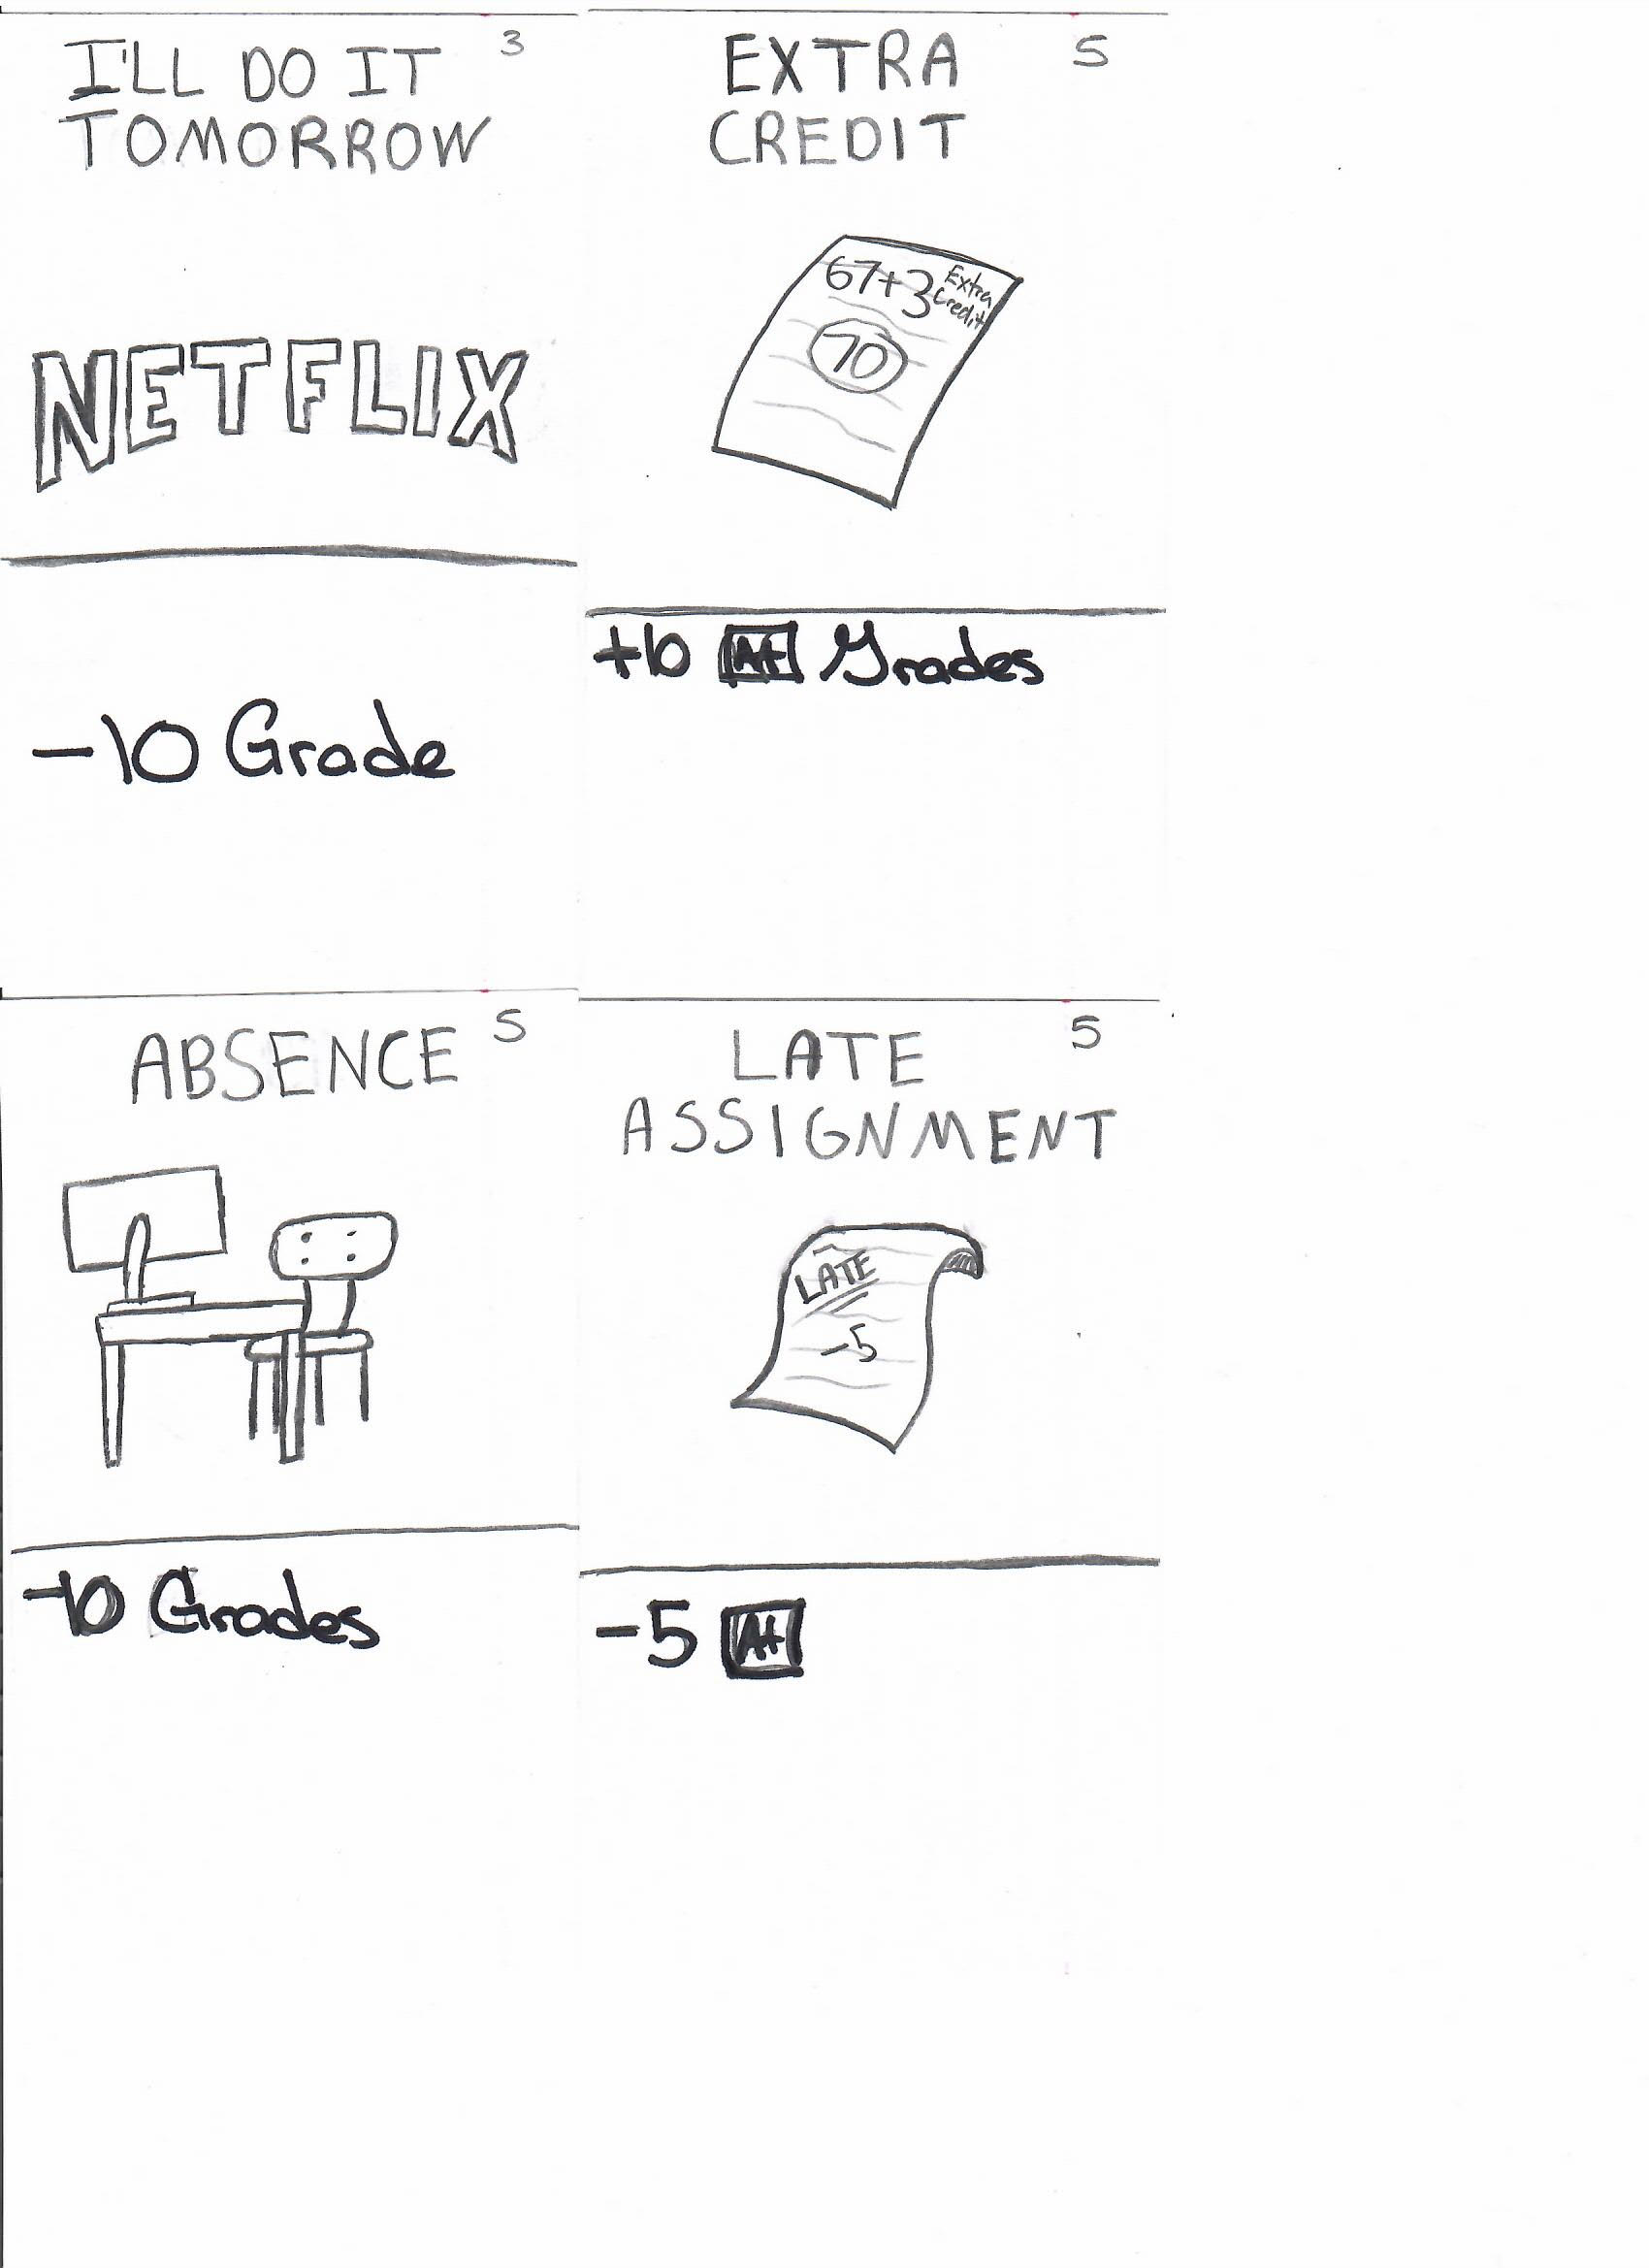 I'LL DO IT
TOMORROW
3
NETFLIX
-10 Grade
EXTRA
CREDIT
5
67+3 Extra
Credit
70
+10 A+ Grades
ABSENCE
5
-10 Grades
LATE
ASSIGNMENT
5
LATE
-5
-5 A+